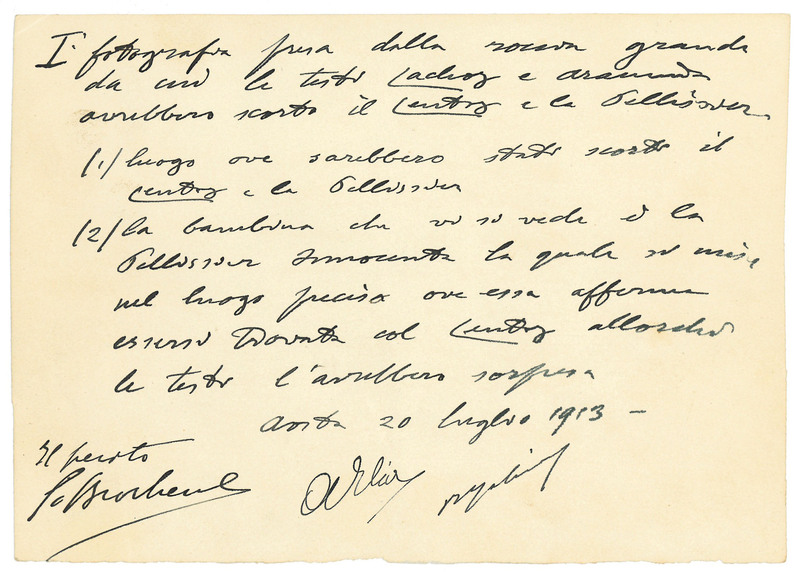 I. fotografia presa dalla roccia grande
da cui le testi Cachoz e
avrebbero scorto il Centoz e la Pellissier.
(1) luogo ove sarebbero stati scorti il
Centoz e la Pellissier
(2) la bambina che vi si vede è la
Pellissier Innocenta la quale si mise
nel luogo preciso ove essa afferma
essersi trovata col Centoz allorchè
le testi l'avrebbero sorpresa
Aosta 20 luglio 1913 -
Il perito